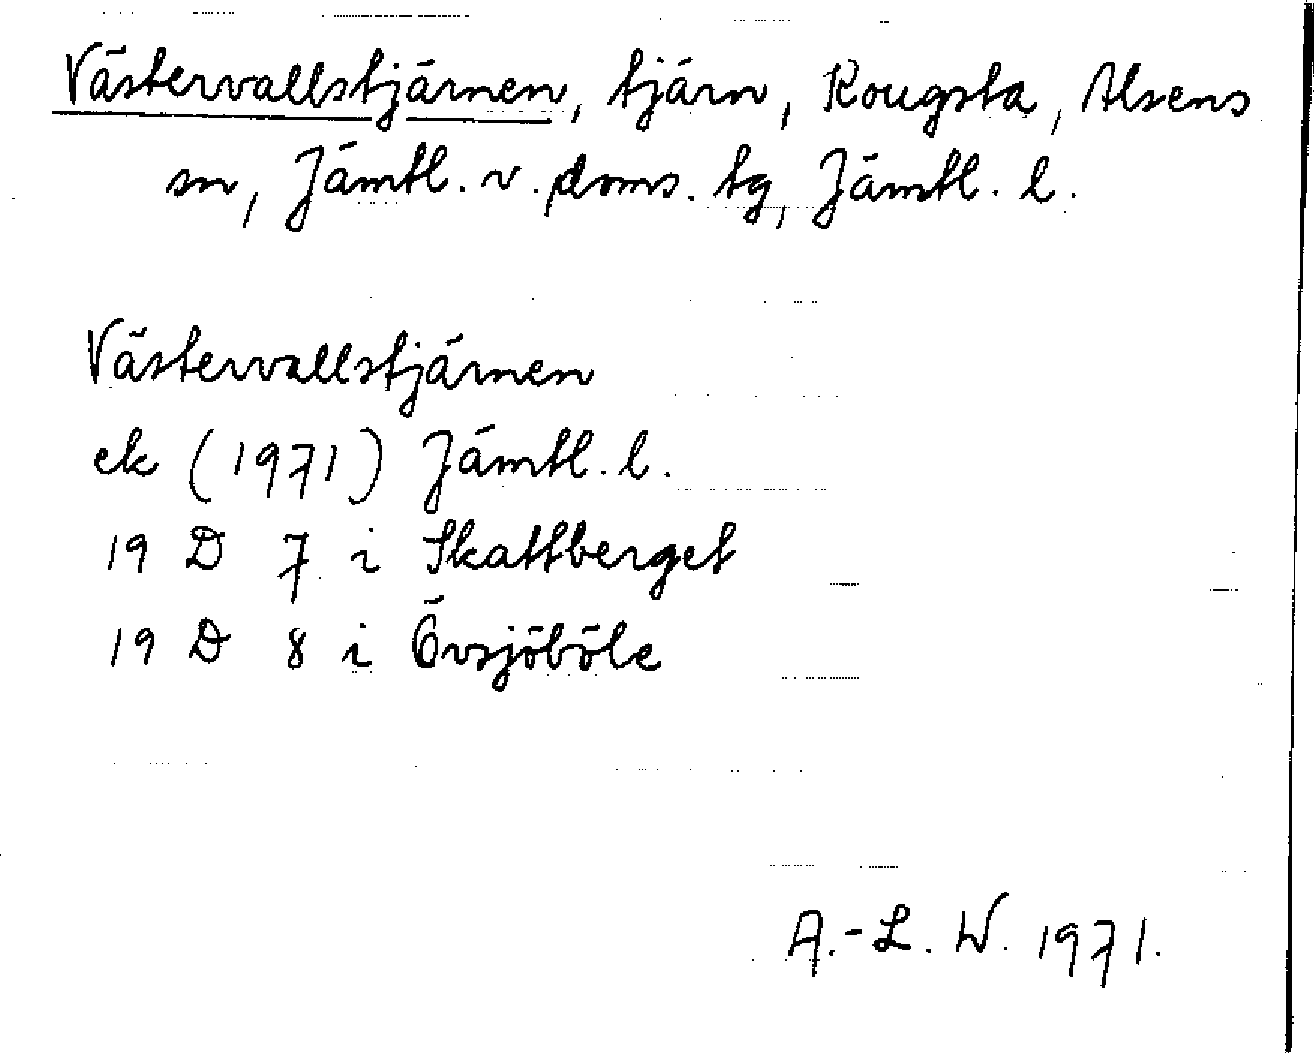 Västervallstjärnen, tjärn, Kougsta, Alsens
sn, Jämtl. v. doms. tg, Jämtl. l.
Västervallstjärnen
ek (1971) Jämtl. l.
19 D 7 i Skattberget
19 D 8 i Övsjöböle
A.-L. W. 1971.